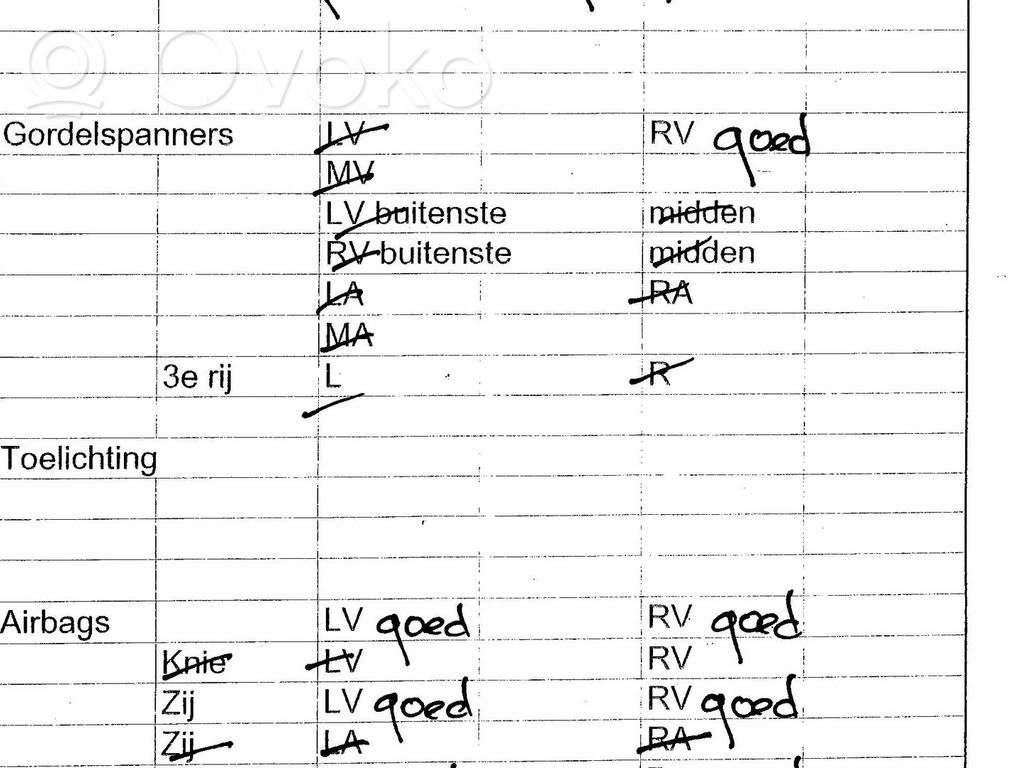 Ovoko
Gordelspanners LV RV goed
MV
LV buitenste midden
RV buitenste midden
LA RA
MA
3e rij L R
Toelichting
Airbags LV goed RV goed
Knie LV RV
Zij LV goed RV goed
Zij LA RA